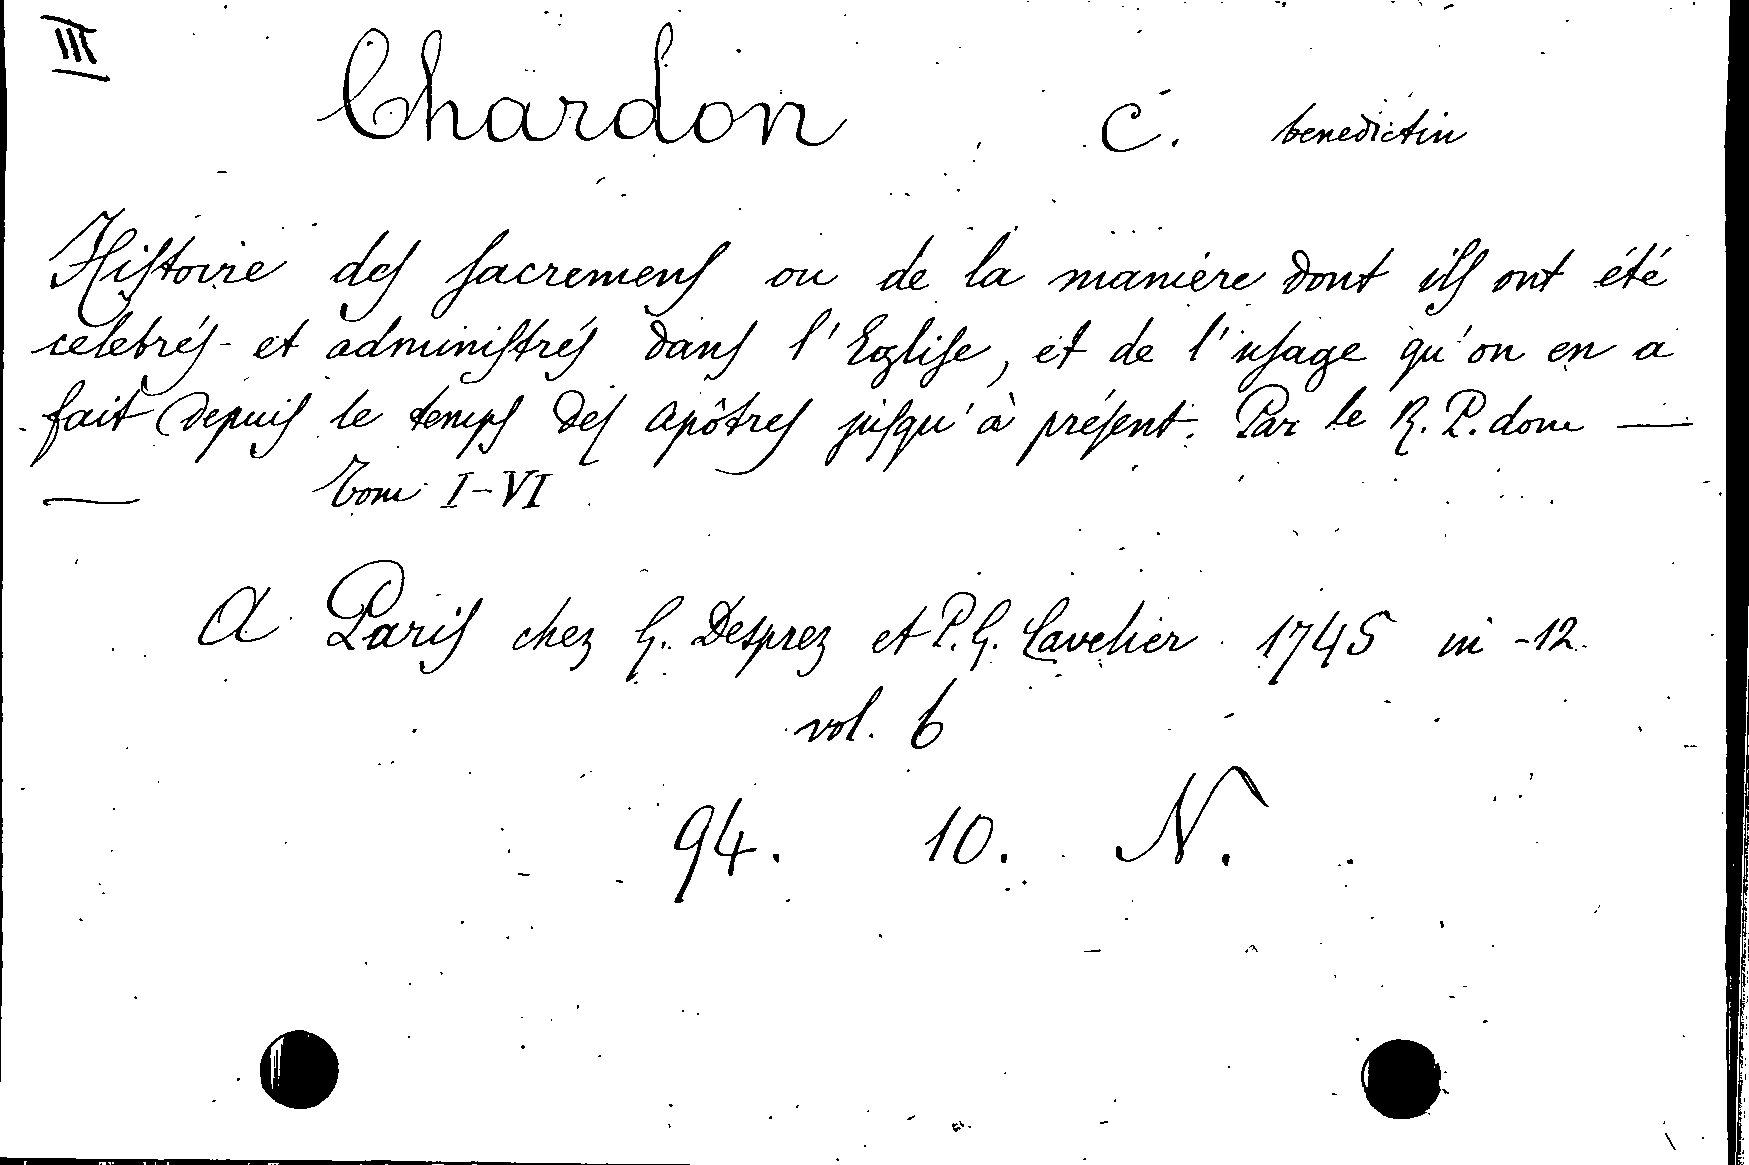 III
Chardon C. benedictin
Histoire des sacremens ou de la maniére dont ils ont été
celebrés et administrés dans l'Eglise, et de l'usage qu'on en a
fait depuis le temps des apôtres jusqu'à présent. Par le R. P. dom —
— Tom I-VI
A Paris chez G. Desprez et P. G. Cavelier 1745 in -12.
vol. 6
94. 10. N.